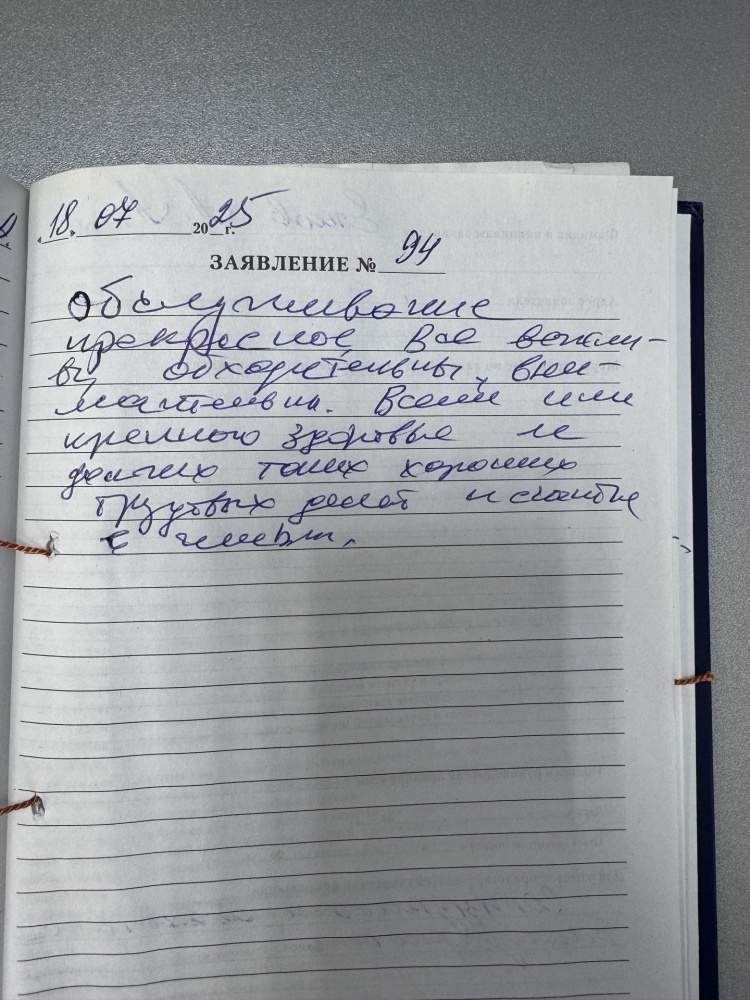 18. 07 2025 г.
ЗАЯВЛЕНИЕ № 94
Обслуживание
прекрасное, Все вежли-
вы, обходительны, вни-
мательны. Всем им
крепкого здоровья и
долгих таких хороших
трудовых делах и счастья